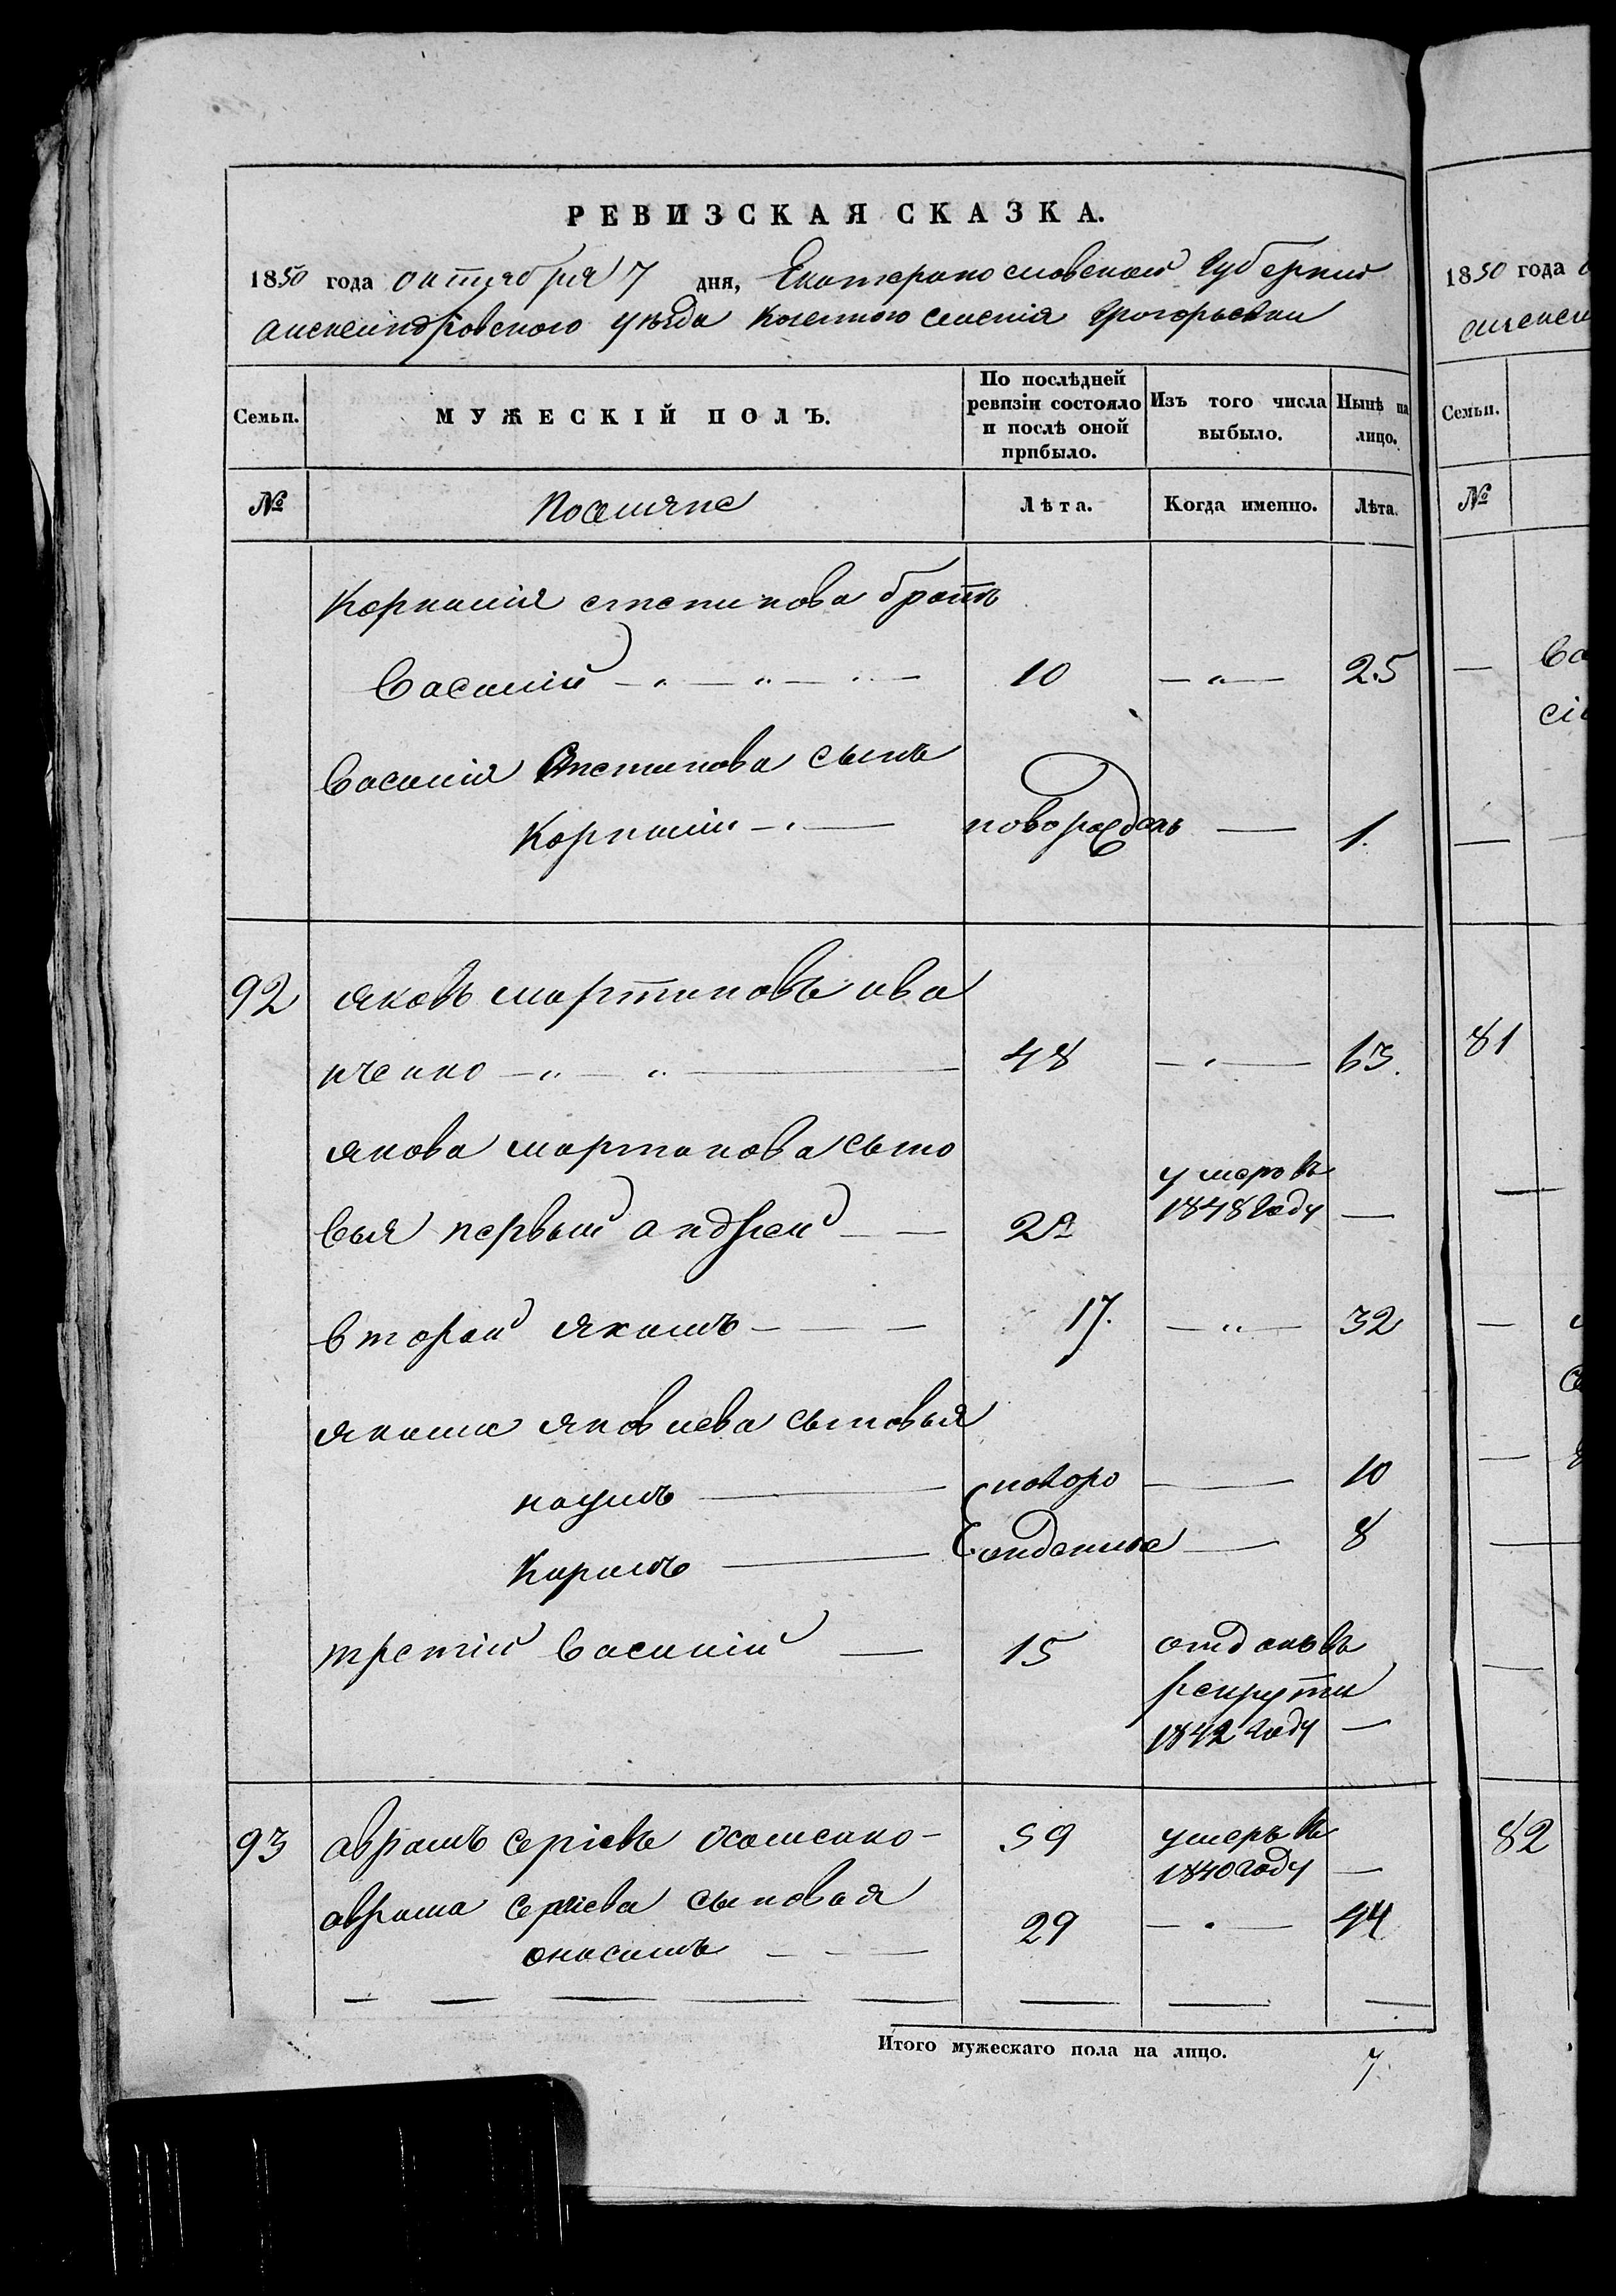 РЕВИЗСКАЯ СКАЗКА.
1850 года октября 7 дня, Екатеринославской Губернии
Александровского уезда Казенного селенія Григорьевки
Семьи.
МУЖЕСКІЙ ПОЛЪ.
По послѣдней ревизіи состояло и послѣ оной прибыло.
Изъ того числа выбыло.
Нынѣ на лицо.
№ Поселяне Лѣта. Когда именно. Лѣта.
Корнилія степанова братъ
Василий 10 25
Василія Степанова сынъ
Корнилій новорожденъ 1.
92 яковъ мартиновъ ива
нченко 48 63.
якова мартинова сыно
вья первый андрей 29 умеръ въ 1848 Году —
второй якимъ 17. 32
якима яковлева сыновья
наумъ новоро 10
Кирилъ жденые 8
третій Василій 15 отданъ въ
рекруты
1842 Году —
93 аврамъ сергіевъ 59 умеръ въ
1840 году —
аврама Сергіева сыновья
онисимъ 29 44
Итого мужескаго пола на лицо. 7.
1850 года
Семьи.
№
Ва
сі
81
82